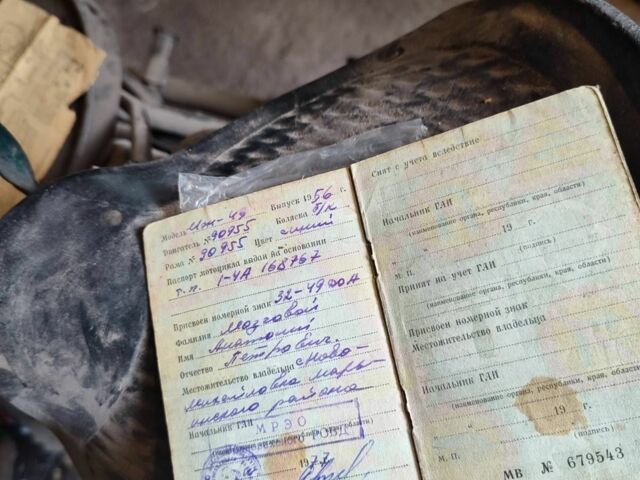 Модель Иж-49 Выпуск 1956 г.
Двигатель № 90955 Коляска б/к
Рама № 90955 Цвет синий
Паспорт мотоцикла выдан на основании
т.п. 1-ЧА 168767
Присвоен номерной знак 32-49 ДОН
Фамилия Мозговой
Имя Анатолий
Отчество Петрович
Местожительство владельца с Ново-
михайловка Марь-
инского района
Начальник ГАИ
МРЭО
1977
Снят с учета вследствие
Начальник ГАИ
(наименование органа, республики, края, области)
" " 19 г.
М. П. (подпись)
Принят на учет ГАИ
(наименование органа, республики, края, области)
Присвоен номерной знак
Местожительство владельца
Начальник ГАИ
(наименование органа, республики, края, области)
" " 19 г.
М. П. (подпись)
МВ № 679543